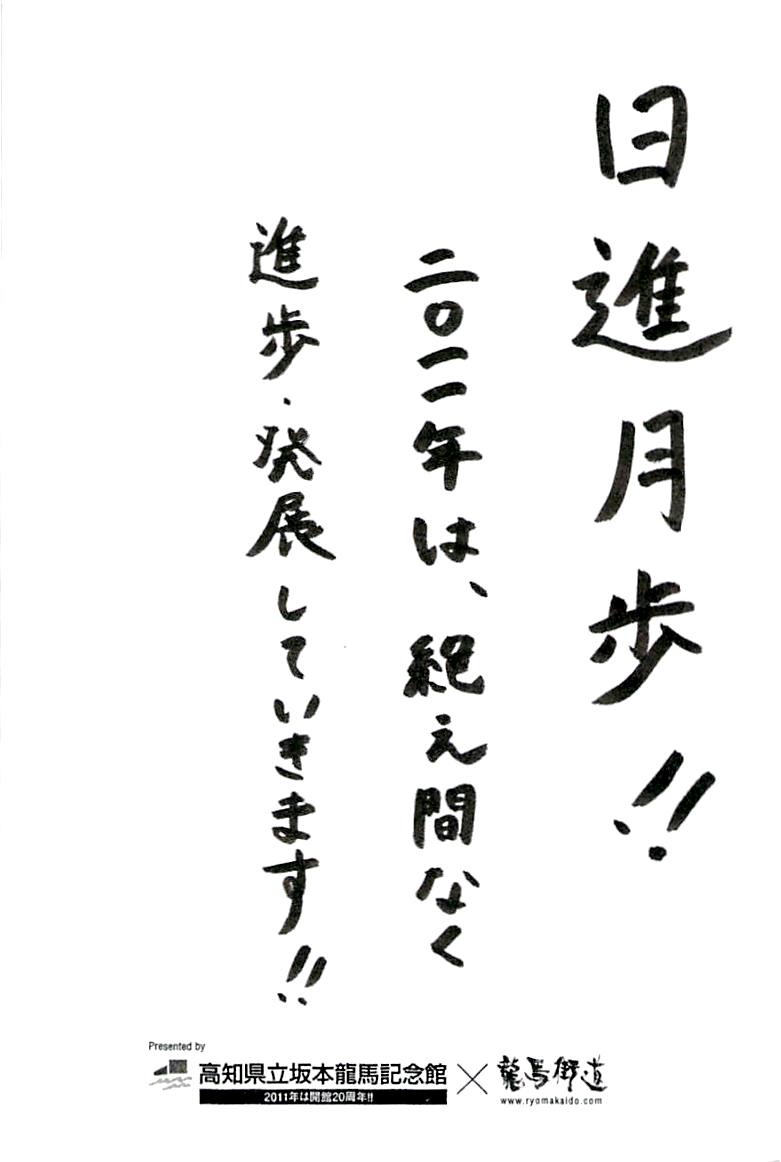 日進月歩!!
二〇一一年は、絶え間なく
進歩・発展していきます!!
Presented by
高知県立坂本龍馬記念館
2011年は開館20周年!!
×
龍馬街道
www.ryomakaido.com